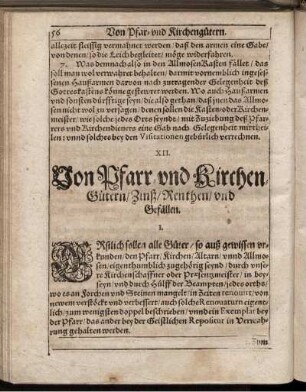 56 Von Pfar- vnd Kirchengütern.
allezeit fleissig vermahnet werden / daß den armen eine Gabe/
von denen / so die Leich begleiten / möge widerfahren.
7. Was demnach also in den Allmosen Kasten fällt / das
soll man wol verwahret behalten / darmit vornemblich ingeses-
senen Haußarmen darvon nach zutragender Gelegenheit deß
Gotteskastens könne gestewrt werden. Wo auch Haußarmen
und sonsten dürfftige seyn / die also gethan / daß jhnen das Allmo-
sen nicht wol zu versagen / denen sollen die Kasten oder Kirchen-
meister / wie solche jedes Orts seynd / mit Zuziehung deß Pfar-
rers vnd Kirchendieners eine Gab nach Gelegenheit mitthei-
len / vnnd solches bey den Visitationen gebürlich verrechnen.
XII.
Von Pfarr vnd Kirchen
Gütern / Zinß / Renthen / vnd
Gefällen.
1.
ERstlich sollen alle Güter / so auß gewissen vr-
kunden / den Pfarr / Kirchen / Altarn / vnnd Allmo-
sen / eigenthumblich zugehörig seynd / durch vnse-
re Kirchenschaffner oder Presentzmeister / in bey-
seyn / vnd durch Hülff der Beampten / jedes orths/
wo es an Forchen vnd Steinen mangelt / in Zeiten renovirt, von
newem verstöckt vnd verbessert / auch solche Renovaturn eigent-
lich / zum wenigsten doppel beschrieben / vnnd ein Exemplar bey
der Pfarr / das ander bey der Geistlichen Repositur in Verwah-
rung gehalten werden.